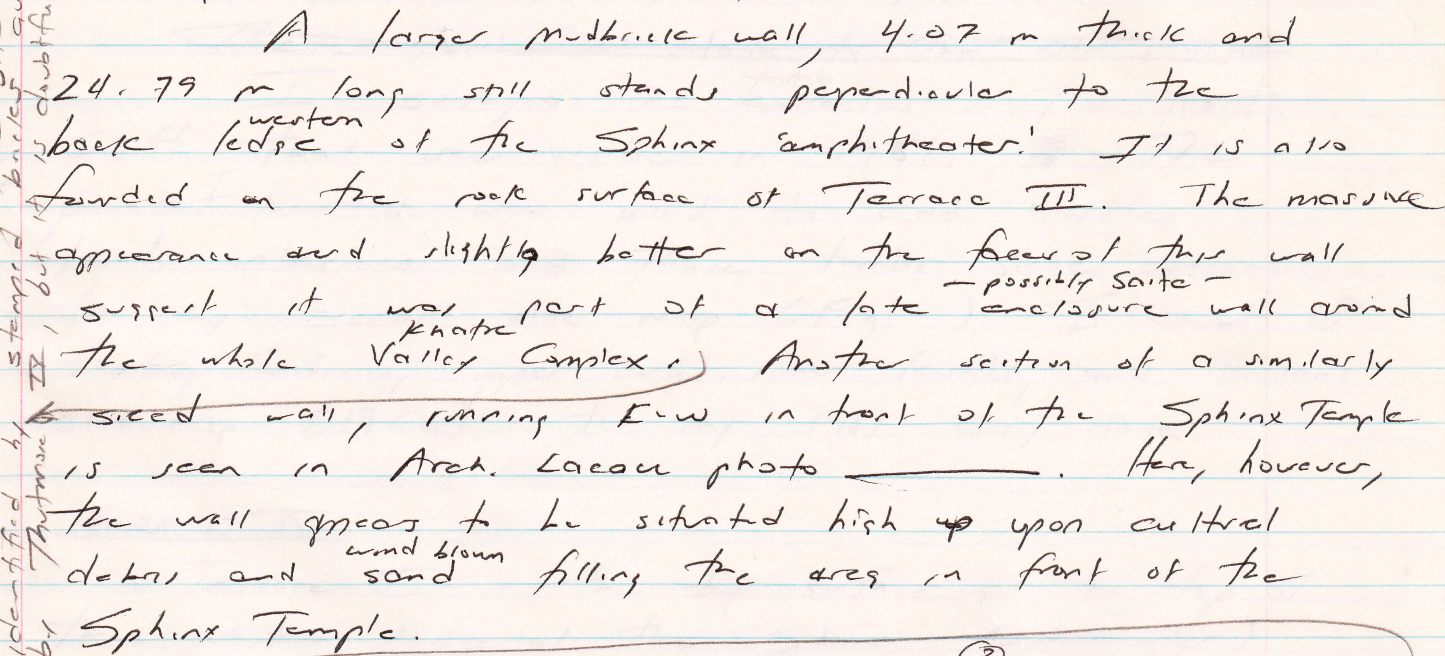 A larger mudbrick wall, 4.07 m thick and
24.79 m long still stands peperdicular to the
western
back ledge of the Sphinx 'amphitheater.' It is also
founded on the rock surface of Terrace III. The massive
appearance and slightly batter on the faces of this wall
— possibly Saite —
suggest it was part of a late enclosure wall around
Khafre
the whole Valley Complex. Another section of a similarly
sized wall, running E-W in front of the Sphinx Temple
is seen in Arch. Lacau photo ______. Here, however,
the wall appears to be situated high up upon cultural
wind blown
debris and sand filling the area in front of the
Sphinx Temple.
identified by stamped bricks
by Thutmose IV, but it is doubtfu